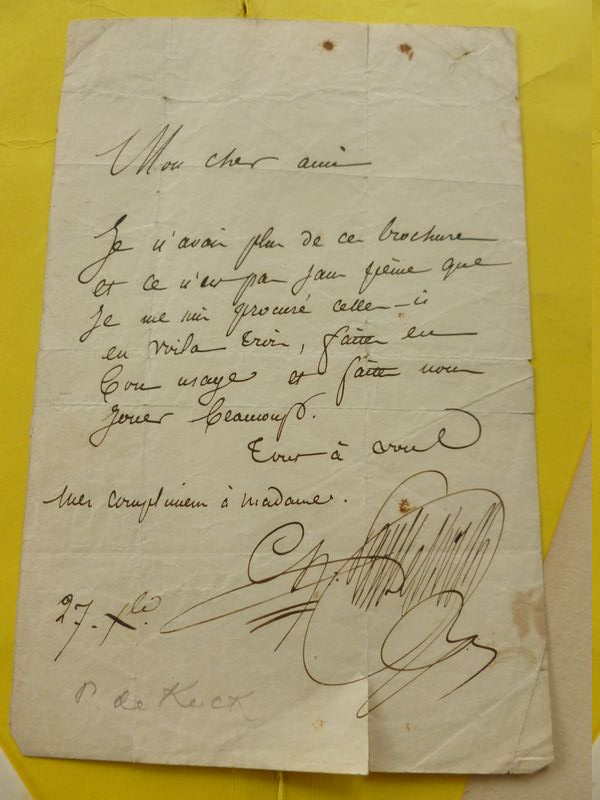 Mon cher ami
Je n'avais plus de ces brochures
et ce n'est pas sans peine que
Je me suis procuré celles-ci
en voila trois, faites en
bon usage et faites nous
jouer beaucoup.
Tout à vous
Mes compliments à madame.
Ch.
27. Xbre
P. de Kock